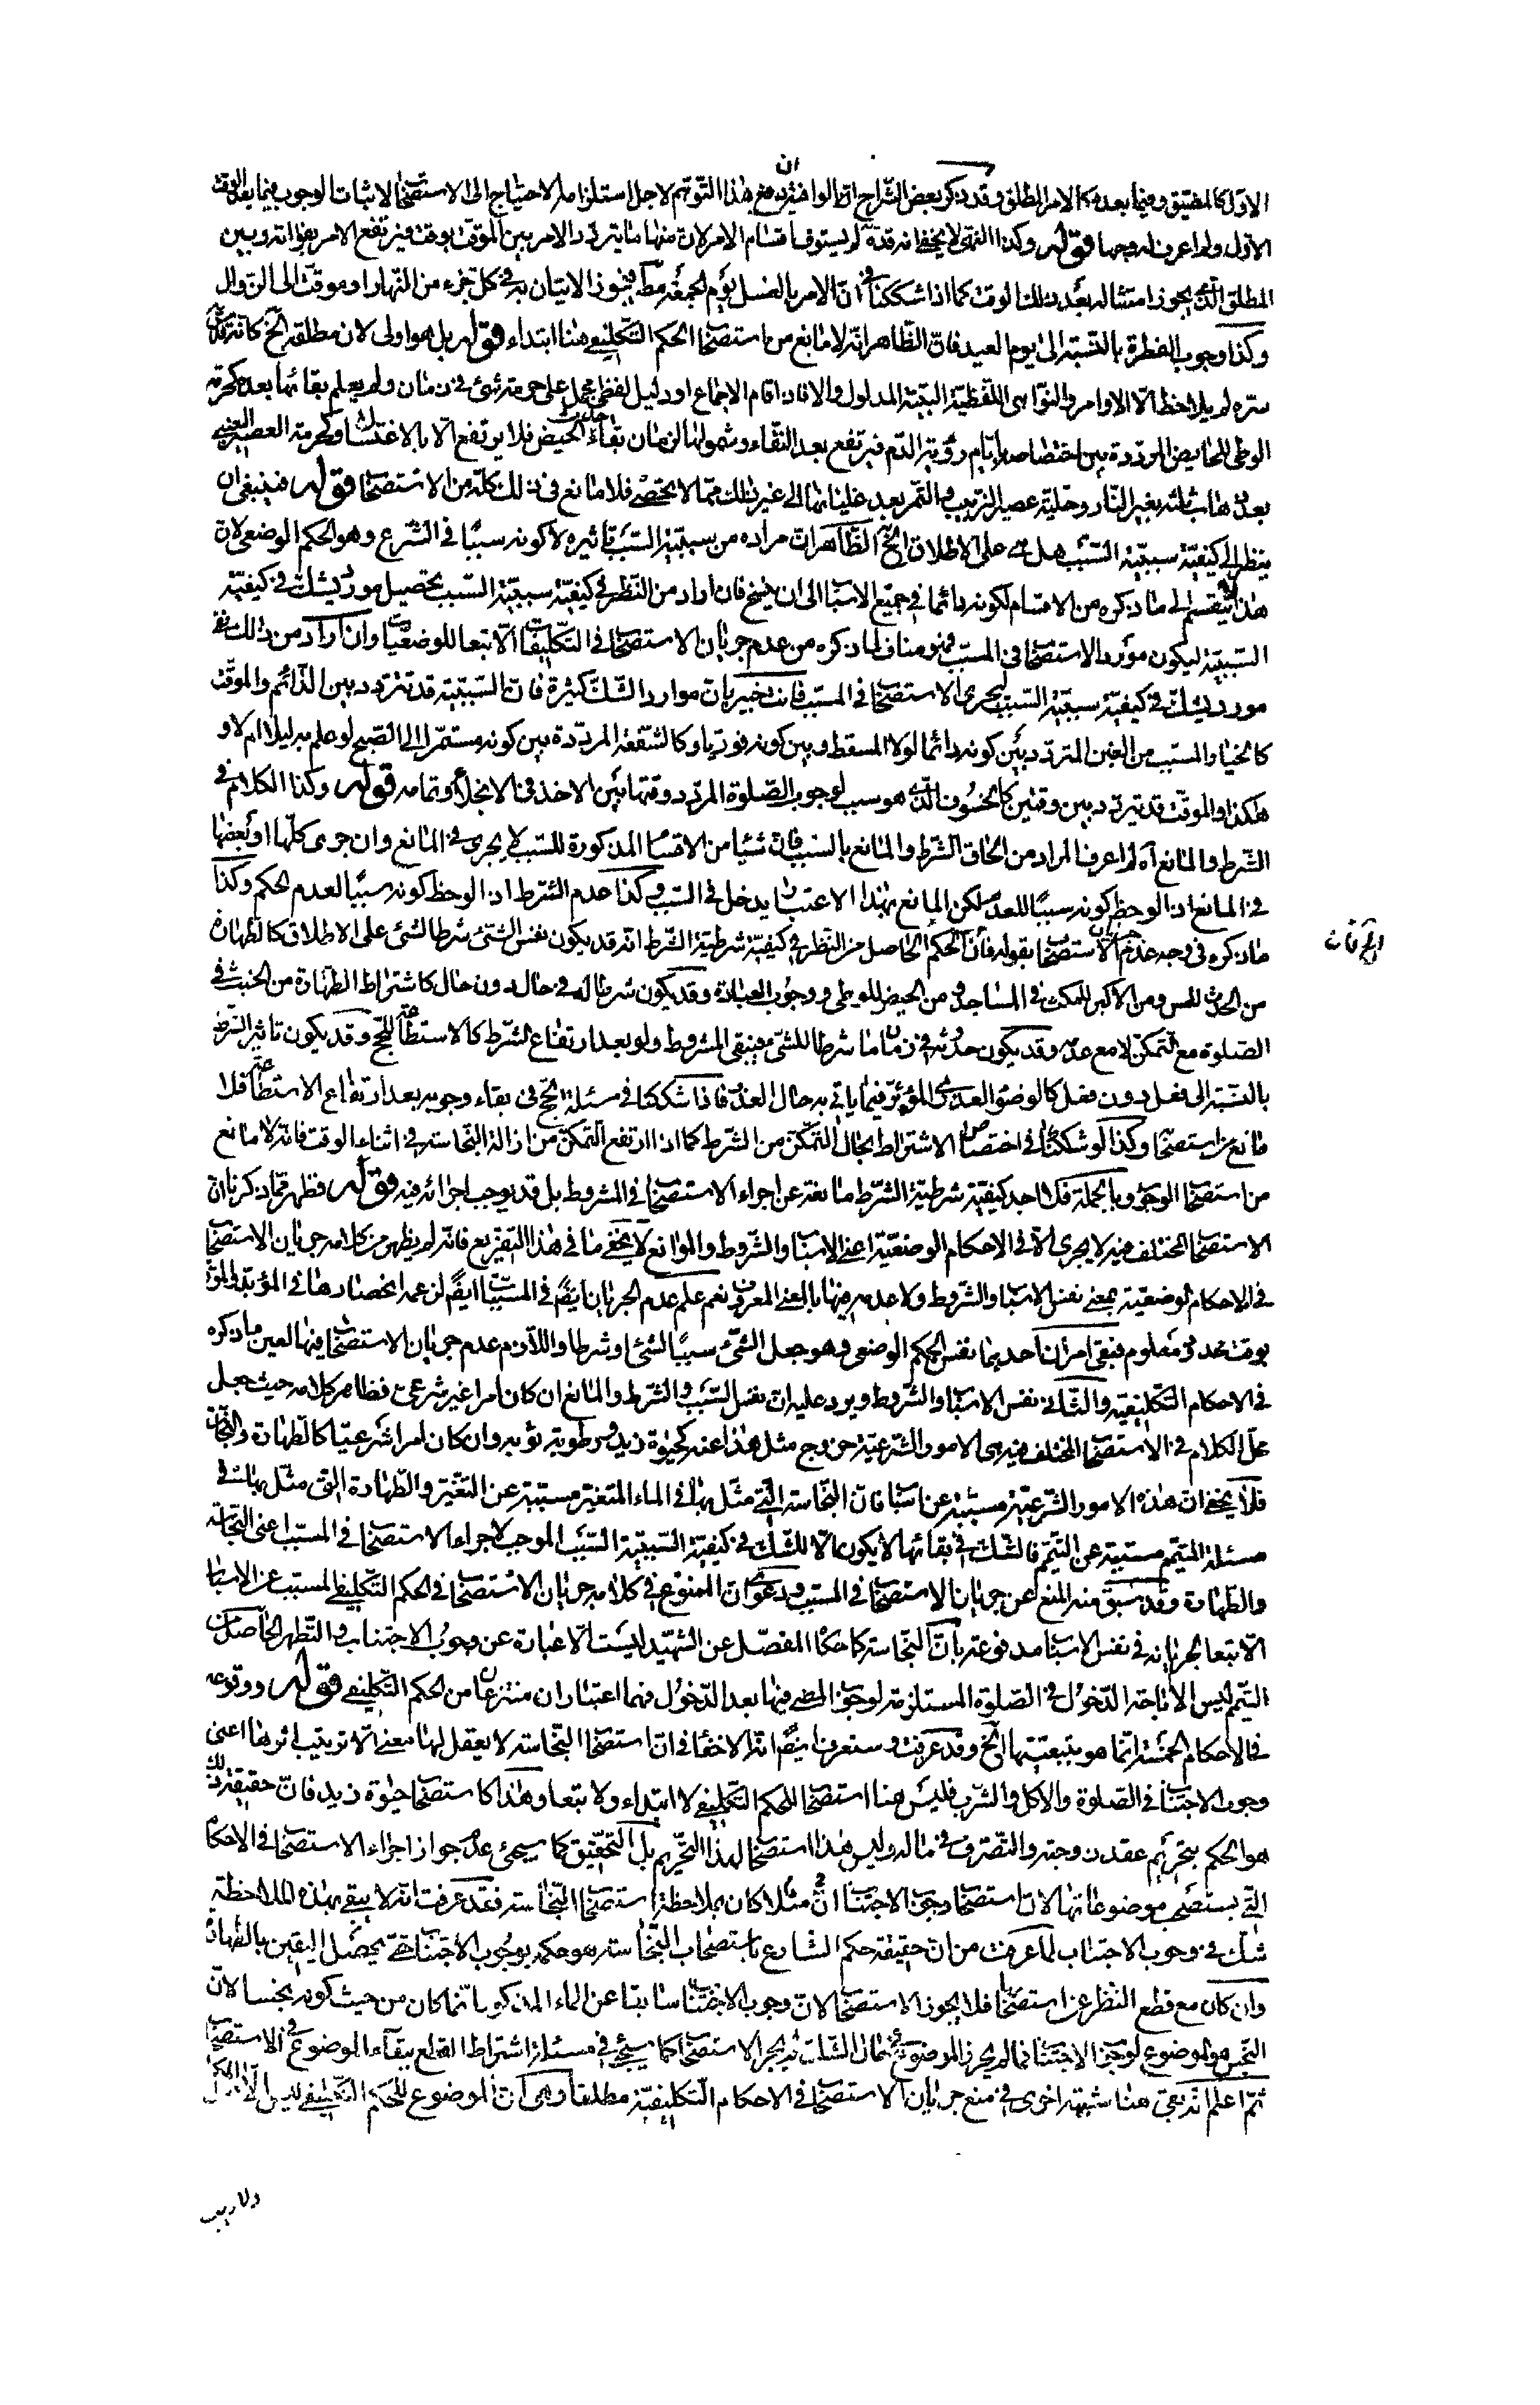 الاوّل كالمضيّق وفيما بعده كالامر المطلق وقد ذكر بعض الشراح ان الوافية دفع هذا التوهّم لاجل استلزامه الاحتياج الى الاستصحاب لاثبات الوجوب فيما بعد الوقت
الاوّل ولم اعرف له وجها قوله وكذا النهى لا يخفى انه قدّه لم يستوف اقسام الامر لان منها ما يتردد الامر بين الموقت بوقت فيرتفع الامر بفواته وبين
المطلق الذى يجوز امتثاله بعد ذلك الوقت كما اذا شككنا فى انّ الامر بالغسل يوم الجمعة مطلق فيجوز الاتيان به فى كل جزء من النهار او موقت الى الزوال
وكذا وجوب الفطرة بالنسبة الى يوم العيد فان الظاهر انه لا مانع من استصحاب الحكم التكليفى هنا ابتداء قوله بل هو اولى لان مطلقه الخ كانه قدس
سره لم يلاحظ الا الاوامر والنواهى اللفظية البينة المدلول والا فاذا قام الاجماع او دليل لفظى مجمل على حرمة شىء فى زمان ولم يعلم بقائها بعده كحرمة
الوطى للحائض المرددة بين اختصاصها بايام رؤية الدم فيرتفع بعد النقاء وشمولها لزمان بقاء حدث الحيض فلا يرتفع الا بالاغتسال وكحرمة العصير العنبى
بعد ذهاب ثلثيه بغير النار وحلية عصير الزبيب والتمر بعد غليانهما الى غير ذلك مما لا يحصى فلا مانع فى ذلك كله من الاستصحاب قوله فينبغى ان
ينظر الى كيفية سببية السبب هل هى على الاطلاق الخ الظاهر ان مراده من سببية السبب تاثيره لا كونه سببا فى الشرع وهو الحكم الوضعى لان
هذا لا ينقسم الى ما ذكره من الاقسام لكونه دائما فى جميع الاسباب الى ان ينسخ فان اراد من النظر فى كيفية سببية السبب تحصيل مورد يشك فى كيفية
السببية ليكون موردا للاستصحاب فى المسبب فهو مناف لما ذكره من عدم جريان الاستصحاب فى التكليفيات الا تبعا للوضعيات وان اراد من ذلك نفى
مورد يشك فى كيفية سببية السبب ليجرى الاستصحاب فى المسبب فانت خبير بان موارد الشك كثيرة فان السببية قد تتردد بين الدائم والموقت
كالخيار المسبب من الغبن المتردد بين كونه دائما لولا المسقط وبين كونه فوريا وكالشفعة المرددة بين كونه مستمرا الى الصبح لو علم به ليلا ام لا و
هكذا والموقت قد تتردد بين وقتين كالخسوف الذى هو سبب لوجوب الصلوة المردد وقتها بين الاخذ فى الانجلاء وتمامه قوله وكذا الكلام فى
الشرط والمانع آه لم اعرف المراد من الحاق الشرط والمانع بالسبب فان شيئا من الاقسام المذكورة للسبب لا يجرى فى المانع وان جرى كلها او بعضها
فى المانع اذا لوحظ كونه سببا للعدم لكن المانع بهذا الاعتبار يدخل فى السبب وكذا عدم الشرط اذا لوحظ كونه سببا لعدم الحكم وكذا
ما ذكره فى وجه عدم جريان الاستصحاب بقوله فان الحكم الحاصل من النظر فى كيفية شرطية الشرط انه قد يكون نفس الشىء شرطا لشىء على الاطلاق كالطهارة
من الحدث للمس ومن الاكبر للمكث فى المساجد ومن الحيض للوطى ووجوب العبادة وقد يكون شرطا له فى حال دون حال كاشتراط الطهارة من الخبث فى
الصلوة مع التمكن لا مع عدمه وقد يكون حدوثه فى زمان ما شرطا للشىء فيبقى المشروط ولو بعد ارتفاع الشرط كالاستطاعة للحج وقد يكون تاثير الشرط
بالنسبة الى فعل دون فعل كالوضوء العذرى المؤثر فيما ياتى به حال العذر فاذا شككنا فى مسئلة الحج فى بقاء وجوبه بعد ارتفاع الاستطاعة فلا
مانع من استصحابه وكذا لو شككنا فى اختصاص الاشتراط بحال التمكن من الشرط كما اذا ارتفع التمكن من ازالة النجاسة فى اثناء الوقت فانه لا مانع
من استصحاب الوجوب وبالجملة فلا اجد كيفية شرطية الشرط مانعة عن اجراء الاستصحاب فى المشروط بل قد يوجب اجرائه فيه قوله فظهر مما ذكرنا ان
الاستصحاب المختلف فيه لا يجرى الا فى الاحكام الوضعية اعنى الاسباب والشروط والموانع لا يخفى ما فى هذا التفريع فانه لم يظهر من كلامه جريان الاستصحاب
فى الاحكام الوضعية بمعنى نفس الاسباب والشروط ولا عدمه فيها بالمعنى المعروف نعم علم عدم الجريان ايضا فى المسببات ايضا لزعمه انحصارها فى المؤبد والموقت
بوقت محدود معلوم فبقى امران احدهما نفس الحكم الوضعى وهو جعل الشىء سببا لشىء او شرطا واللازم عدم جريان الاستصحاب فيها لعين ما ذكره
فى الاحكام التكليفية والثانى نفس الاسباب والشروط ويرد عليه ان نفس السبب والشرط والمانع ان كان امرا غير شرعى فظاهر كلامه حيث جعل
محل الكلام فى الاستصحاب المختلف فيه هى الامور الشرعية خروج مثل هذا عنه كحيوة زيد ورطوبة ثوبه وان كان امرا شرعيا كالطهارة والنجاسة
فلا يخفى ان هذه الامور الشرعية مسببة عن اسباب فان النجاسة التى مثل بها فى الماء المتغير مسببة عن التغير والطهارة التى مثل بها فى
مسئلة المتيمم مسببة عن التيمم فالشك فى بقائها لا يكون الا للشك فى كيفية السببية السبب الموجب لاجراء الاستصحاب فى المسبب اعنى النجاسة
والطهارة وقد سبق منه المنع عن جريان الاستصحاب فى المسبب ودعوى ان الممنوع فى كلامه جريان الاستصحاب فى الحكم التكليفى المسبب عن الاسباب
الا تبعا لجريانه فى نفس الاسباب مدفوعة بان النجاسة كما حكاه المفصل عن الشهيد ليست الا عبارة عن وجوب الاجتناب والتطهر الحاصل من
التيمم ليس الا اباحة الدخول فى الصلوة المستلزمة لوجوب المضى فيها بعد الدخول فهما اعتباران منتزعان من الحكم التكليفى قوله ووقوعه
فى الاحكام الخمسة انما هو بتبعيتها الخ وقد عرفت وستعرف ايضا انه لا خفاء فى ان استصحاب النجاسة لا يعقل لها معنى الا ترتيب اثرها اعنى
وجوب الاجتناب فى الصلوة والاكل والشرب فليس هنا استصحاب للحكم التكليفى لا ابتداء ولا تبعا وهذا كاستصحاب حيوة زيد فان حقيقة ذلك
هو الحكم بتحريم عقد زوجته والتصرف فى ماله وليس هذا استصحابا لهذا التحريم بل التحقيق كما سيجىء عدم جواز اجراء الاستصحاب فى الاحكام
التى يستصحب موضوعاتها لان استصحاب وجوب الاجتناب مثلا ان كان بملاحظة استصحاب النجاسة فقد عرفت انه لا يبقى بهذه الملاحظة
شك فى وجوب الاجتناب لما عرفت من ان حقيقة حكم الشارع باستصحاب النجاسة هو حكمه بوجوب الاجتناب حتى يحصل اليقين بالطهارة
وان كان مع قطع النظر عن استصحابها فلا يجوز الاستصحاب لان وجوب الاجتناب سابقا عن الماء المذكور انما كان من حيث كونه نجسا لان
النجس هو الموضوع لوجوب الاجتناب فما لم يحرز الموضوع فى زمان الشك لم يجر الاستصحاب كما سيجىء فى مسئلة اشتراط القطع ببقاء الموضوع فى الاستصحاب
ثم اعلم انه بقى هنا شبهة اخرى فى منع جريان الاستصحاب فى الاحكام التكليفية مطلقا وهى ان الموضوع للحكم التكليفى ليس الا فعل المكلف
ولا ريب